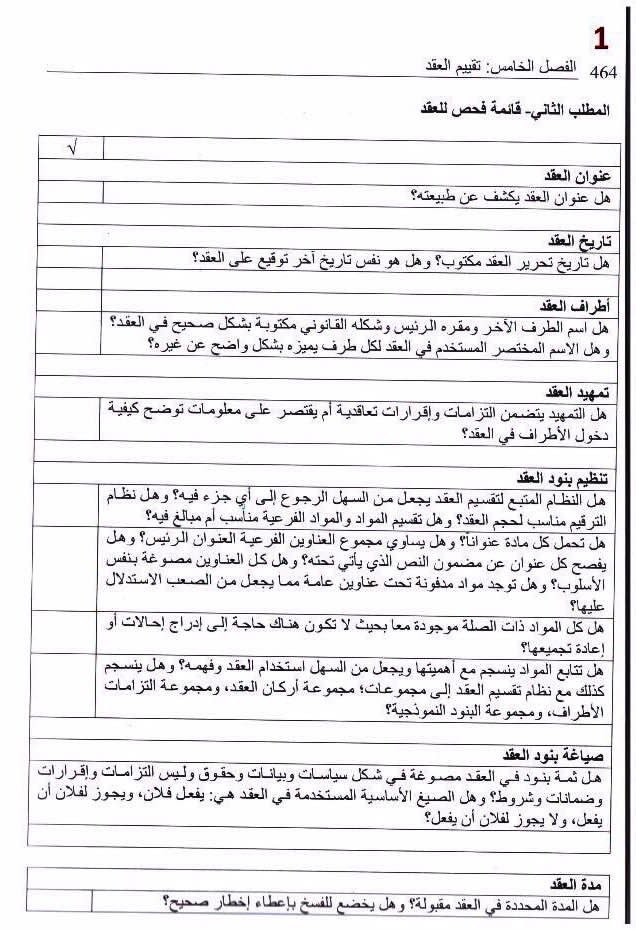 1
464 الفصل الخامس: تقييم العقد
المطلب الثاني- قائمة فحص للعقد
√
عنوان العقد
هل عنوان العقد يكشف عن طبيعته؟
تاريخ العقد
هل تاريخ تحرير العقد مكتوب؟ وهل هو نفس تاريخ آخر توقيع على العقد؟
أطراف العقد
هل اسم الطرف الآخر ومقره الرئيس وشكله القانوني مكتوبة بشكل صحيح في العقد؟
وهل الاسم المختصر المستخدم في العقد لكل طرف يميزه بشكل واضح عن غيره؟
تمهيد العقد
هل التمهيد يتضمن التزامات وإقرارات تعاقدية أم يقتصر على معلومات توضح كيفية
دخول الأطراف في العقد؟
تنظيم بنود العقد
هل النظام المتبع لتقسيم العقد يجعل من السهل الرجوع إلى أي جزء فيه؟ وهل نظام
الترقيم مناسب لحجم العقد؟ وهل تقسيم المواد والمواد الفرعية مناسب أم مبالغ فيه؟
هل تحمل كل مادة عنوانا؟ وهل يساوي مجموع العناوين الفرعية العنوان الرئيس؟ وهل
يفصح كل عنوان عن مضمون النص الذي يأتي تحته؟ وهل كل العناوين مصوغة بنفس
الأسلوب؟ وهل توجد مواد مدفونة تحت عناوين عامة مما يجعل من الصعب الاستدلال
عليها؟
هل كل المواد ذات الصلة موجودة معا بحيث لا تكون هناك حاجة إلى إدراج إحالات أو
إعادة تجميعها؟
هل تتابع المواد ينسجم مع أهميتها ويجعل من السهل استخدام العقد وفهمه؟ وهل ينسجم
كذلك مع نظام تقسيم العقد إلى مجموعات؛ مجموعة أركان العقد، ومجموعة التزامات
الأطراف، ومجموعة البنود النموذجية؟
صياغة بنود العقد
هل ثمة بنود في العقد مصوغة في شكل سياسات وبيانات وحقوق وليس التزامات وإقرارات
وضمانات وشروط؟ وهل الصيغ الأساسية المستخدمة في العقد هي: يفعل فلان، ويجوز لفلان أن
يفعل، ولا يجوز لفلان أن يفعل؟
مدة العقد
هل المدة المحددة في العقد مقبولة؟ وهل يخضع للفسخ بإعطاء إخطار صحيح؟